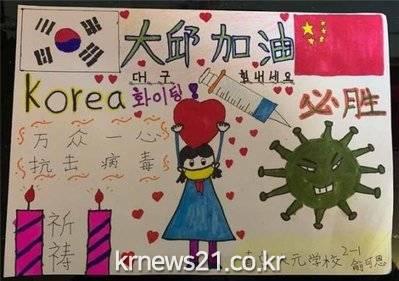 大邱加油
대구 힘내세요
Korea 화이팅!
必胜
万众一心
抗击病毒
祈祷
krnews21.co.kr
元学校 2-1
俞可恩